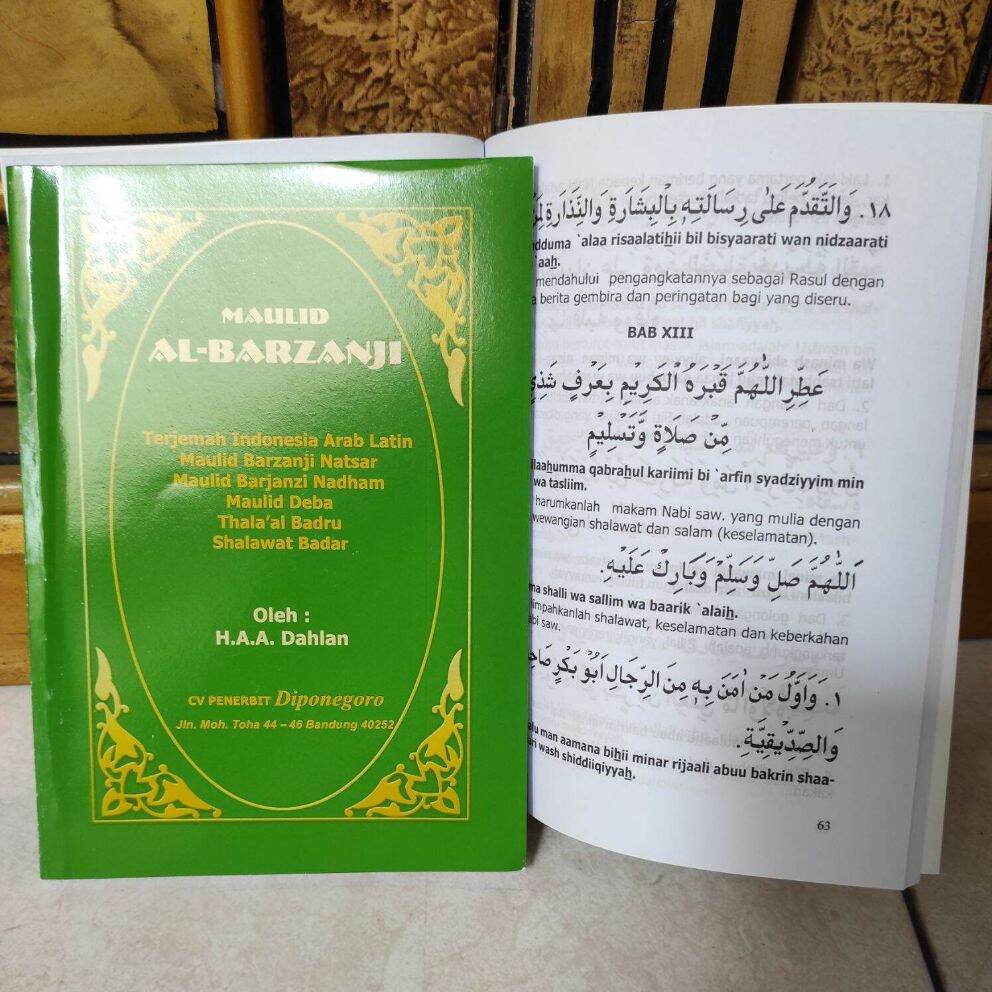 MAULID
AL-BARZANJI
Terjemah Indonesia Arab Latin
Maulid Barzanji Natsar
Maulid Barjanzi Nadham
Maulid Deba
Thala'al Badru
Shalawat Badar
Oleh :
H.A.A. Dahlan
CV PENERBIT Diponegoro
Jln. Moh. Toha 44 – 46 Bandung 40252
١٨. وَالتَّقَدُّمَ عَلَى رِسَالَتِهِ بِالْبِشَارَةِ وَالنِّذَارَةِ
`alaa risaalatihii bil bisyaarati wan nidzaarati
mendahului pengangkatannya sebagai Rasul dengan
berita gembira dan peringatan bagi yang diseru.
BAB XIII
عَطِّرِ اللّٰهُمَّ قَبْرَهُ الْكَرِيْمَ بِعَرْفٍ شَذِيٍّ
مِّنْ صَلَاةٍ وَّتَسْلِيْمٍ
qabrahul kariimi bi `arfin syadziyyim min
wa tasliim.
harumkanlah makam Nabi saw. yang mulia dengan
wewangian shalawat dan salam (keselamatan).
اَللّٰهُمَّ صَلِّ وَسَلِّمْ وَبَارِكْ عَلَيْهِ.
shalli wa sallim wa baarik `alaih.
shalawat, keselamatan dan keberkahan
saw.
١. وَاَوَّلُ مَنْ اٰمَنَ بِهِ مِنَ الرِّجَالِ اَبُوْ بَكْرٍ
وَالصِّدِّيْقِيَّةِ.
man aamana bihii minar rijaali abuu bakrin shaa-
wash shiddiiqiyyah.
63